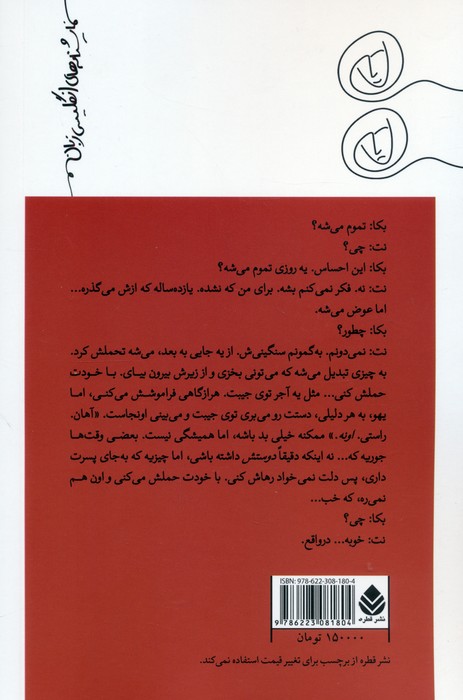 نمایشنامه‌های انگلیسی زبان
بکا: تموم می‌شه؟
نت: چی؟
بکا: این احساس. یه روزی تموم می‌شه؟
نت: نه. فکر نمی‌کنم بشه. برای من که نشده. یازده‌ساله که ازش می‌گذره...
اما عوض می‌شه.
بکا: چطور؟
نت: نمی‌دونم. به‌گمونم سنگینی‌ش. از یه جایی به بعد، می‌شه تحملش کرد.
به چیزی تبدیل می‌شه که می‌تونی بخزی و از زیرش بیرون بیای. با خودت
حملش کنی... مثل یه آجر توی جیبت. هرازگاهی فراموشش می‌کنی، اما
یهو، به هر دلیلی، دستت رو می‌بری توی جیبت و می‌بینی اونجاست. «آهان.
راستی. اونه.» ممکنه خیلی بد باشه، اما همیشگی نیست. بعضی وقت‌ها
جوریه که... نه اینکه دقیقاً دوستش داشته باشی، اما چیزیه که به‌جای پسرت
داری، پس دلت نمی‌خواد رهاش کنی. با خودت حملش می‌کنی و اون هم
نمی‌ره، که خب...
بکا: چی؟
نت: خوبه... درواقع.
ISBN: 978-622-308-180-4
9 786223 081804
نشر قطره
۱۵۰۰۰۰ تومان
نشر قطره از برچسب برای تغییر قیمت استفاده نمی‌کند.